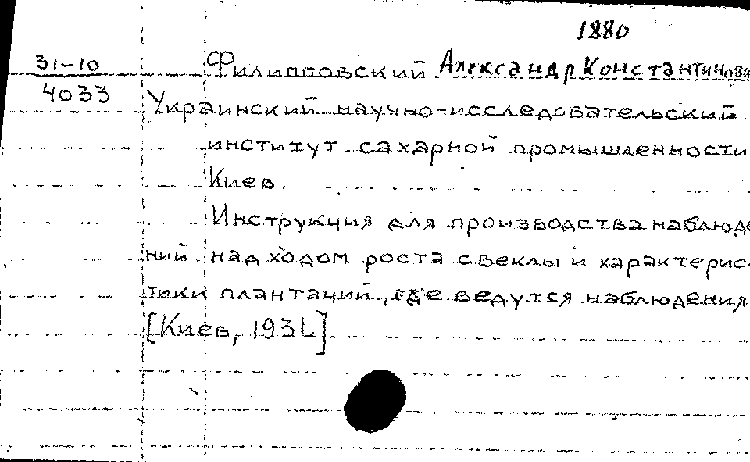 1880
31-10 Филипповский Александр Константинови
4033 Украинский научно-исследовательский
институт сахарной промышленности
Киев
Инструкция для производства наблюде
ний над ходом роста свеклы и характерис-
тики плантаций, где ведутся наблюдения
[Киев, 1931]